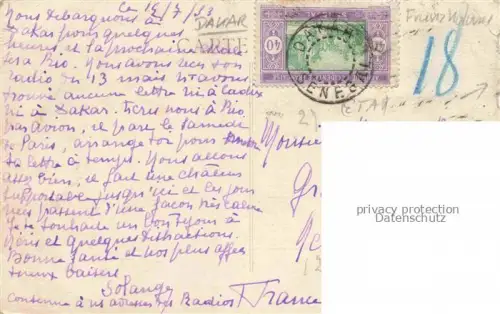 Ce 19/7/33
Nous débarquons à
Dakar pour quelques
heures, et la prochaine
à Rio. Nous avons reçu ton
radio du 13 mais n'avons
trouvé aucune lettre ni à Cadix
ni à Dakar. Ecris nous à Rio,
par Avion, il part le Samedi
de Paris, arrange toi pour
ta lettre à temps. Nous allons
assez bien, il fait une chaleur
supportable jusqu'ici et les jours
passent d'une façon
Je te souhaite un bon séjour à
et quelques distractions.
Bonne santé et nos plus affec
tueux baisers
Solange
Radios France
DAKAR
CARTE
40
DAKAR
SENEGAL
18
Monsieur
privacy protection
Datenschutz